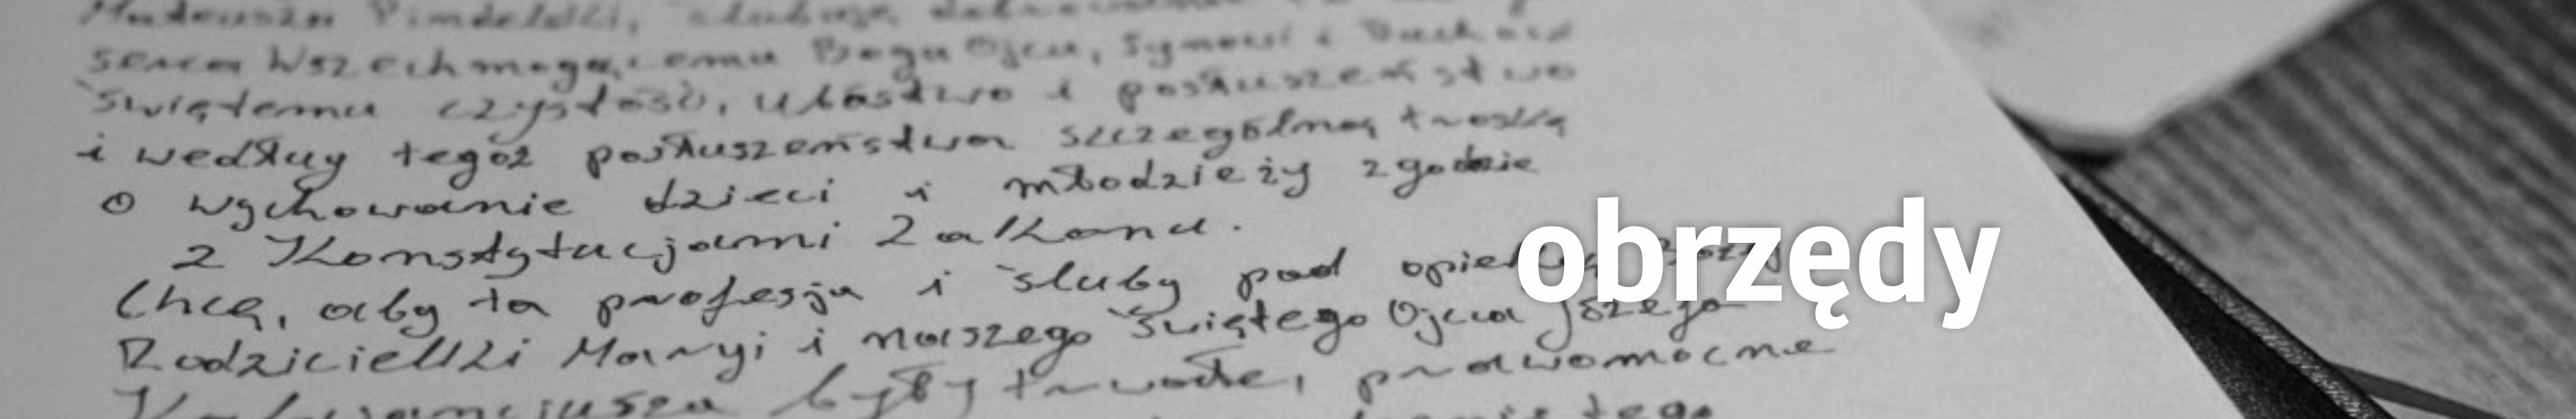 Mateusza Pindelski, ślubuję
serca Wszechmogącemu Bogu Ojcu, Synowi i Duchowi
Świętemu czystość, ubóstwo i posłuszeństwo
i według tegoż posłuszeństwa szczególną troskę
o wychowanie dzieci i młodzieży zgodnie
z Konstytucjami Zakonu.
Chcę, aby ta profesja i śluby pod opieką Bożej
Rodzicielki Maryi i naszego Świętego Ojca Józefa
Kalasancjusza były trwałe, prawomocne
tego
obrzędy